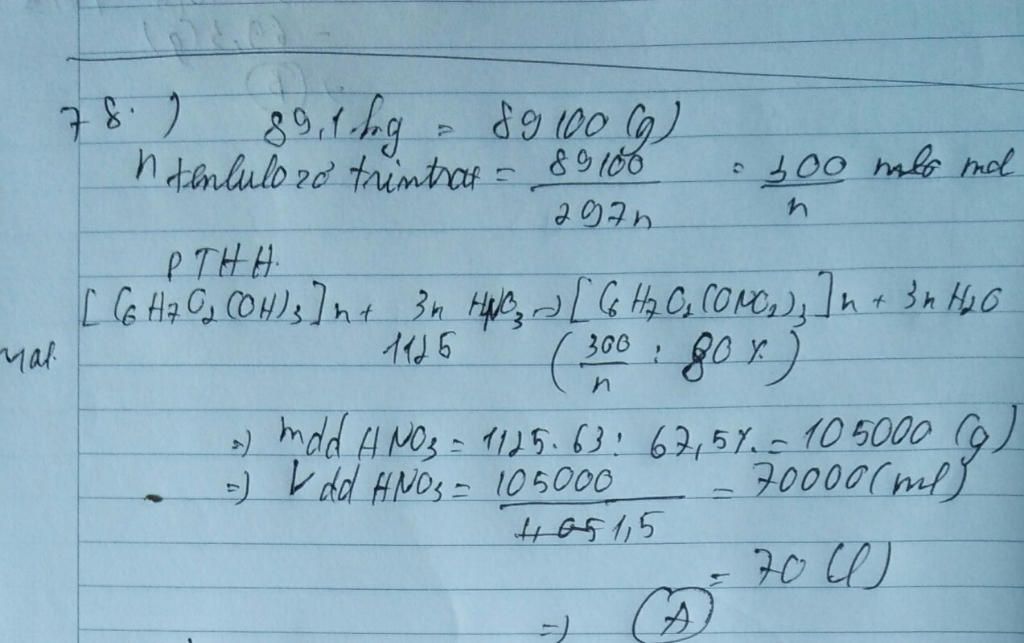 78.) 89,1.kg = 89100 (g)
n xenlulozơ trintrat = 89100 / 297n = 300 / n mol
PTHH.
[C6H7O2(OH)3]n + 3n HNO3 → [C6H7O2(ONO2)3]n + 3n H2O
mol. 1125 (300 / n : 80%)
=> mdd HNO3 = 1125.63 : 67,5% = 105000 (g)
=> Vdd HNO3 = 105000 / 1,5 = 70000 (ml)
= 70 (l)
=> (A)